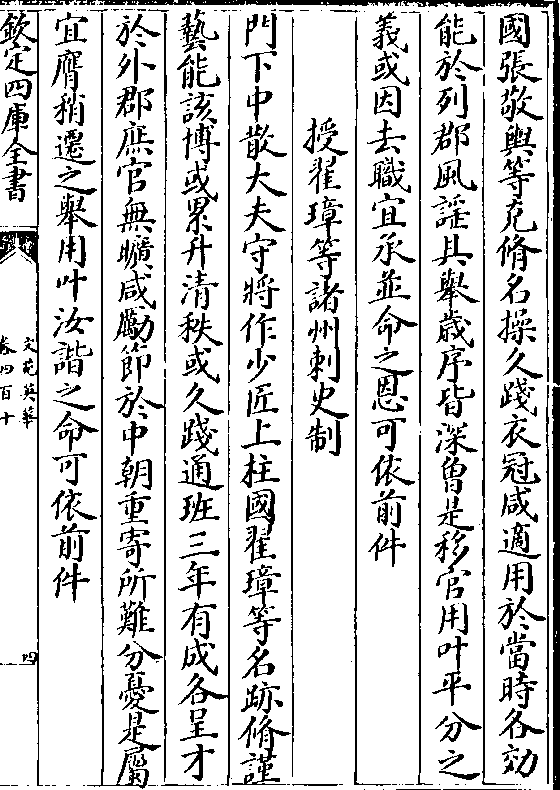 國張敬輿等克脩名操久踐衣冠咸適用於當時各効
能於列郡風謡具舉歳序皆深曽是移官用叶平分之
義或因去職宜承並命之恩可依前件
授翟璋等諸州刺史制
門下中散大夫守將作少匠上柱國翟璋等名跡脩謹
藝能該博或累升清秩或久踐通班三年有成各呈才
於外郡庶官無曠咸勵節於中朝重寄所難分憂是屬
宜膺稍遷之舉用叶汝諧之命可依前件
欽定四庫全書
文苑英華
卷四百十
四